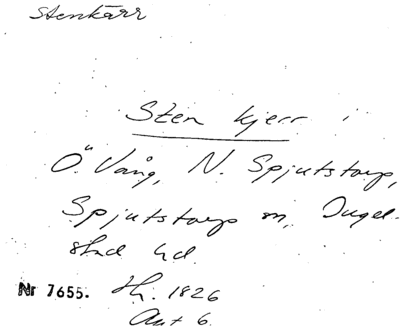 Stenkärr
Sten kjerr i
Ö. Vång, N. Spjutstorp,
Spjutstorp sn, Ingel-
stad hd.
Nr 7655. Hh. 1826
Akt 6.